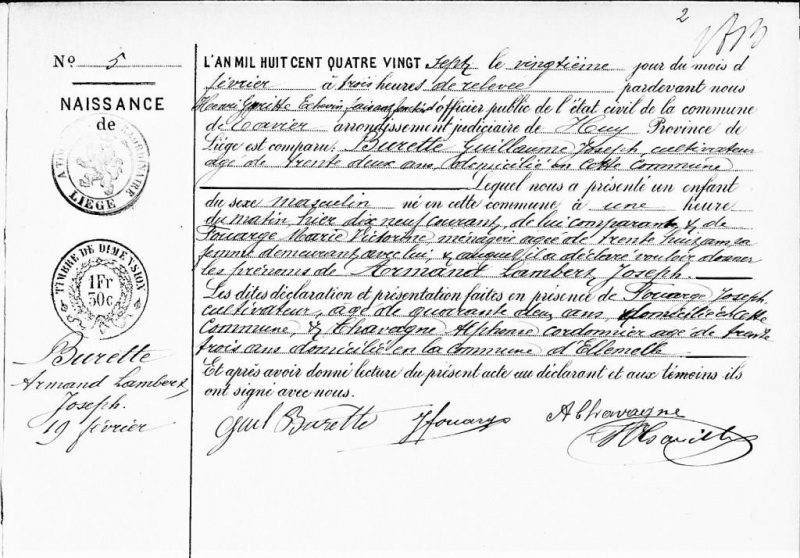 2
Nº 5
NAISSANCE
de
LIÈGE
TIMBRE DE DIMENSION
1Fr
30c
Burette
Armand Lambert,
Joseph.
19 février
L'AN MIL HUIT CENT QUATRE VINGT sept le vingtième jour du mois d
février à trois heures de relevée pardevant nous
Henri Echevin faisant d'officier public de l'état civil de la commune
de Xavier arrondissement judiciaire de Huy Province de
Liège est comparu: Burette Guillaume Joseph cultivateur
agé de trente deux ans domicilié en cette commune
Lequel nous a présenté un enfant
du sexe masculin né en cette commune à une heure
du matin, hier dix neuf courant, de lui comparant & de
Fouarge Marie Victorine, ménagère agée de trente huit ans sa
femme demeurant avec lui, & auquel il a déclaré vouloir donner
les prénoms de Armand Lambert Joseph.
Les dites déclaration et présentation faites en présence de Fouarge Joseph,
cultivateur, agé de quarante deux ans domicilié cette
commune, & Chavagne Alphonse cordonnier agé de trente
trois ans domicilié en la commune d'Ellemelle
Et après avoir donné lecture du présent acte au déclarant et aux témoins ils
ont signé avec nous.
Guil Burette
J Fouarge
A Chavagne